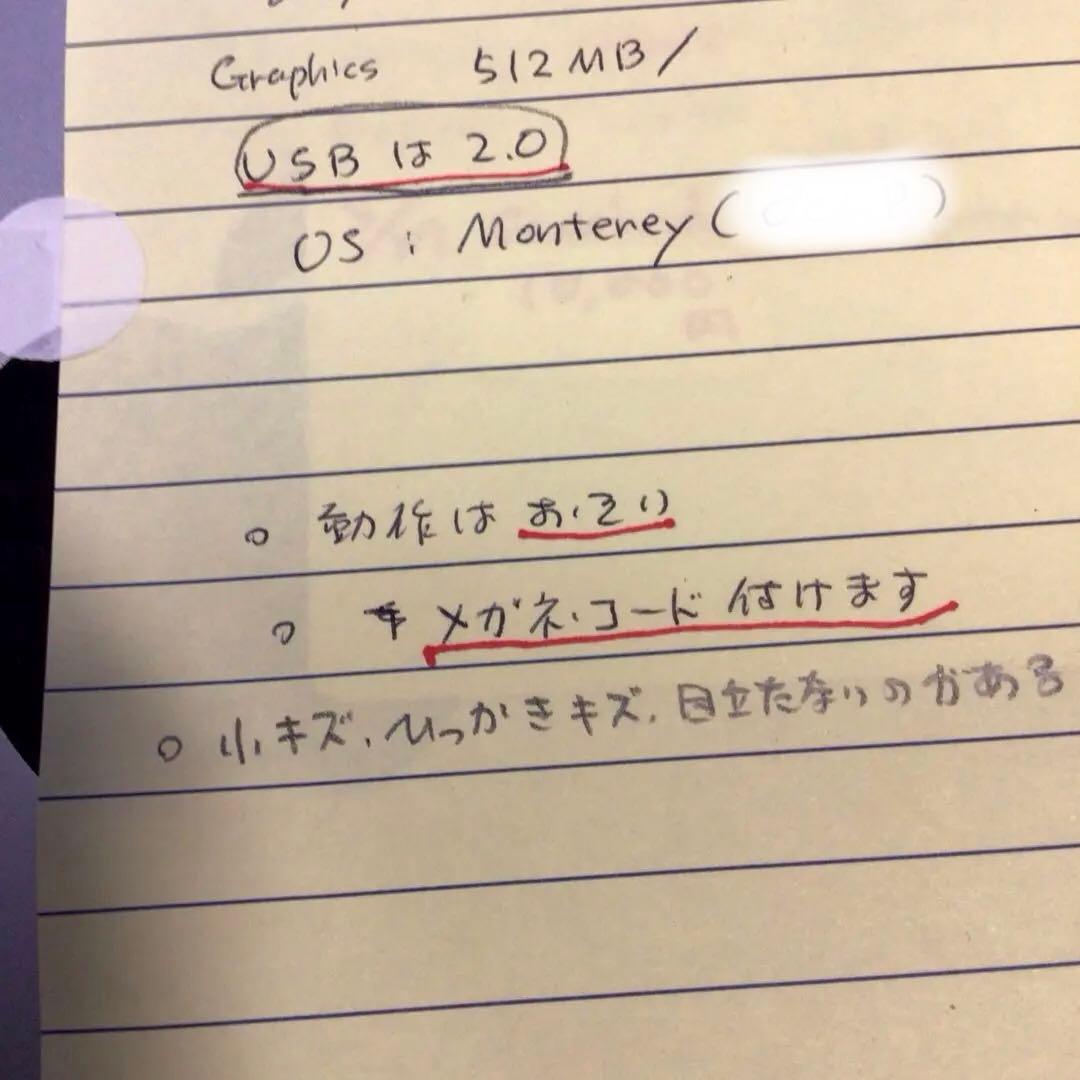 Graphics 512MB/
USBは2.0
OS: Monterey(
○ 動作はおそい
○ メガネ.コード付けます
○ 小キズ、ひっかきキズ、目立たないのがある